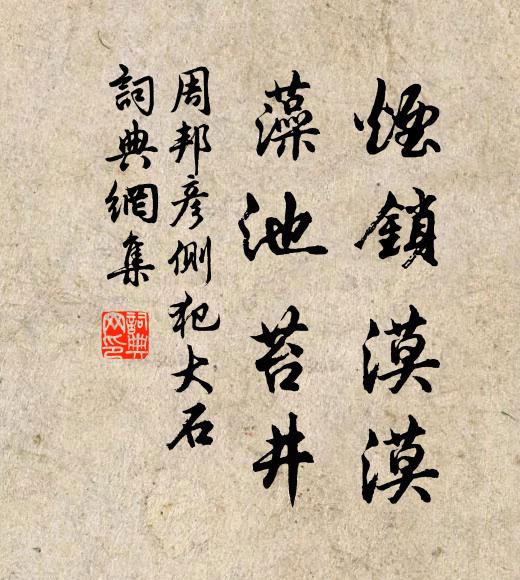 煙鎖漠漠
藻池苔井
周邦彥側犯大石
詞典網集
詞典网印